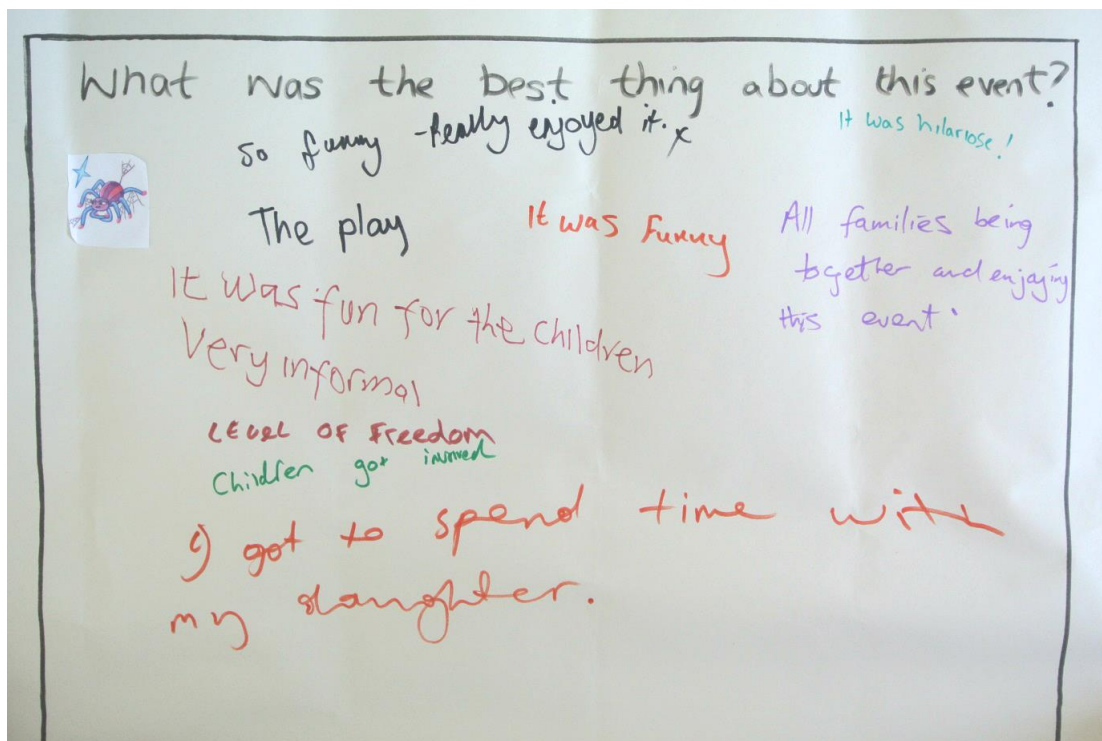 What was the best thing about this event?
so funny - Really enjoyed it. x
It was hilariose!
The play
It was Funny
All families being
together and enjoying
this event.
It was fun for the children
Very informal
LEVEL OF FREEDOM
Children got involved
I got to spend time with
my daughter.